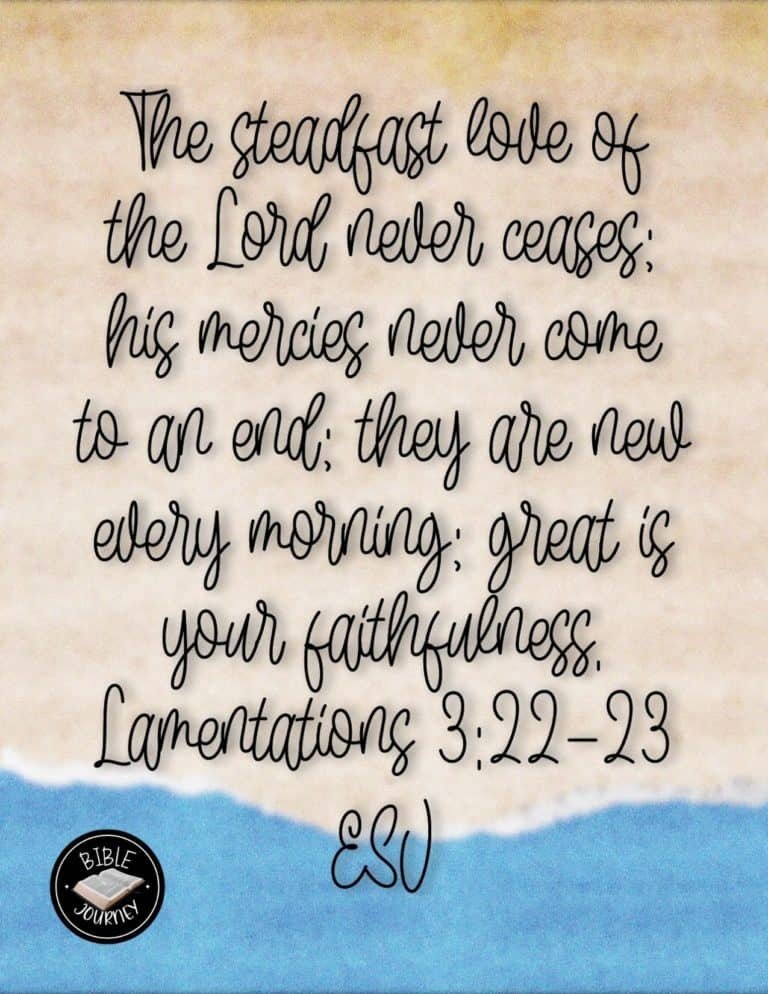 The steadfast love of
the Lord never ceases;
his mercies never come
to an end; they are new
every morning; great is
your faithfulness.
Lamentations 3:22-23
ESV
BIBLE
JOURNEY